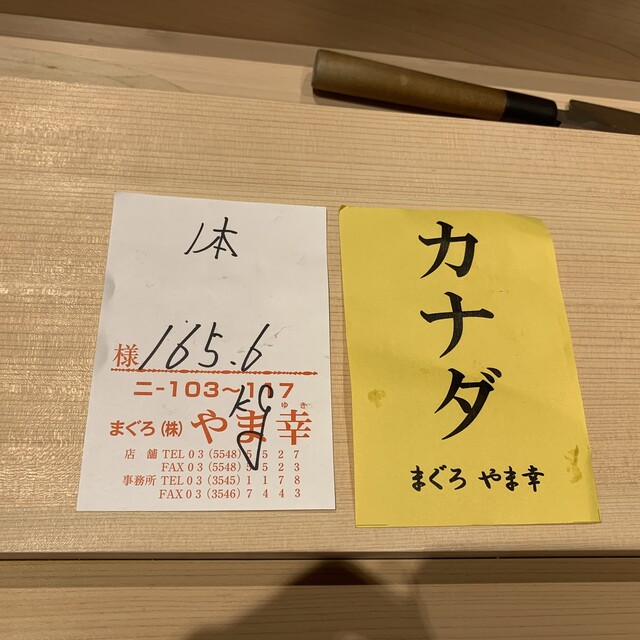 1本
様 165.6
kg
ニ-103~117
まぐろ(株) やま幸
ゆき
店 舗 TEL 03 (5548) 5527
FAX 03 (5548) 5523
事務所 TEL 03 (3545) 1178
FAX 03 (3546) 7443
カナダ
まぐろ やま幸